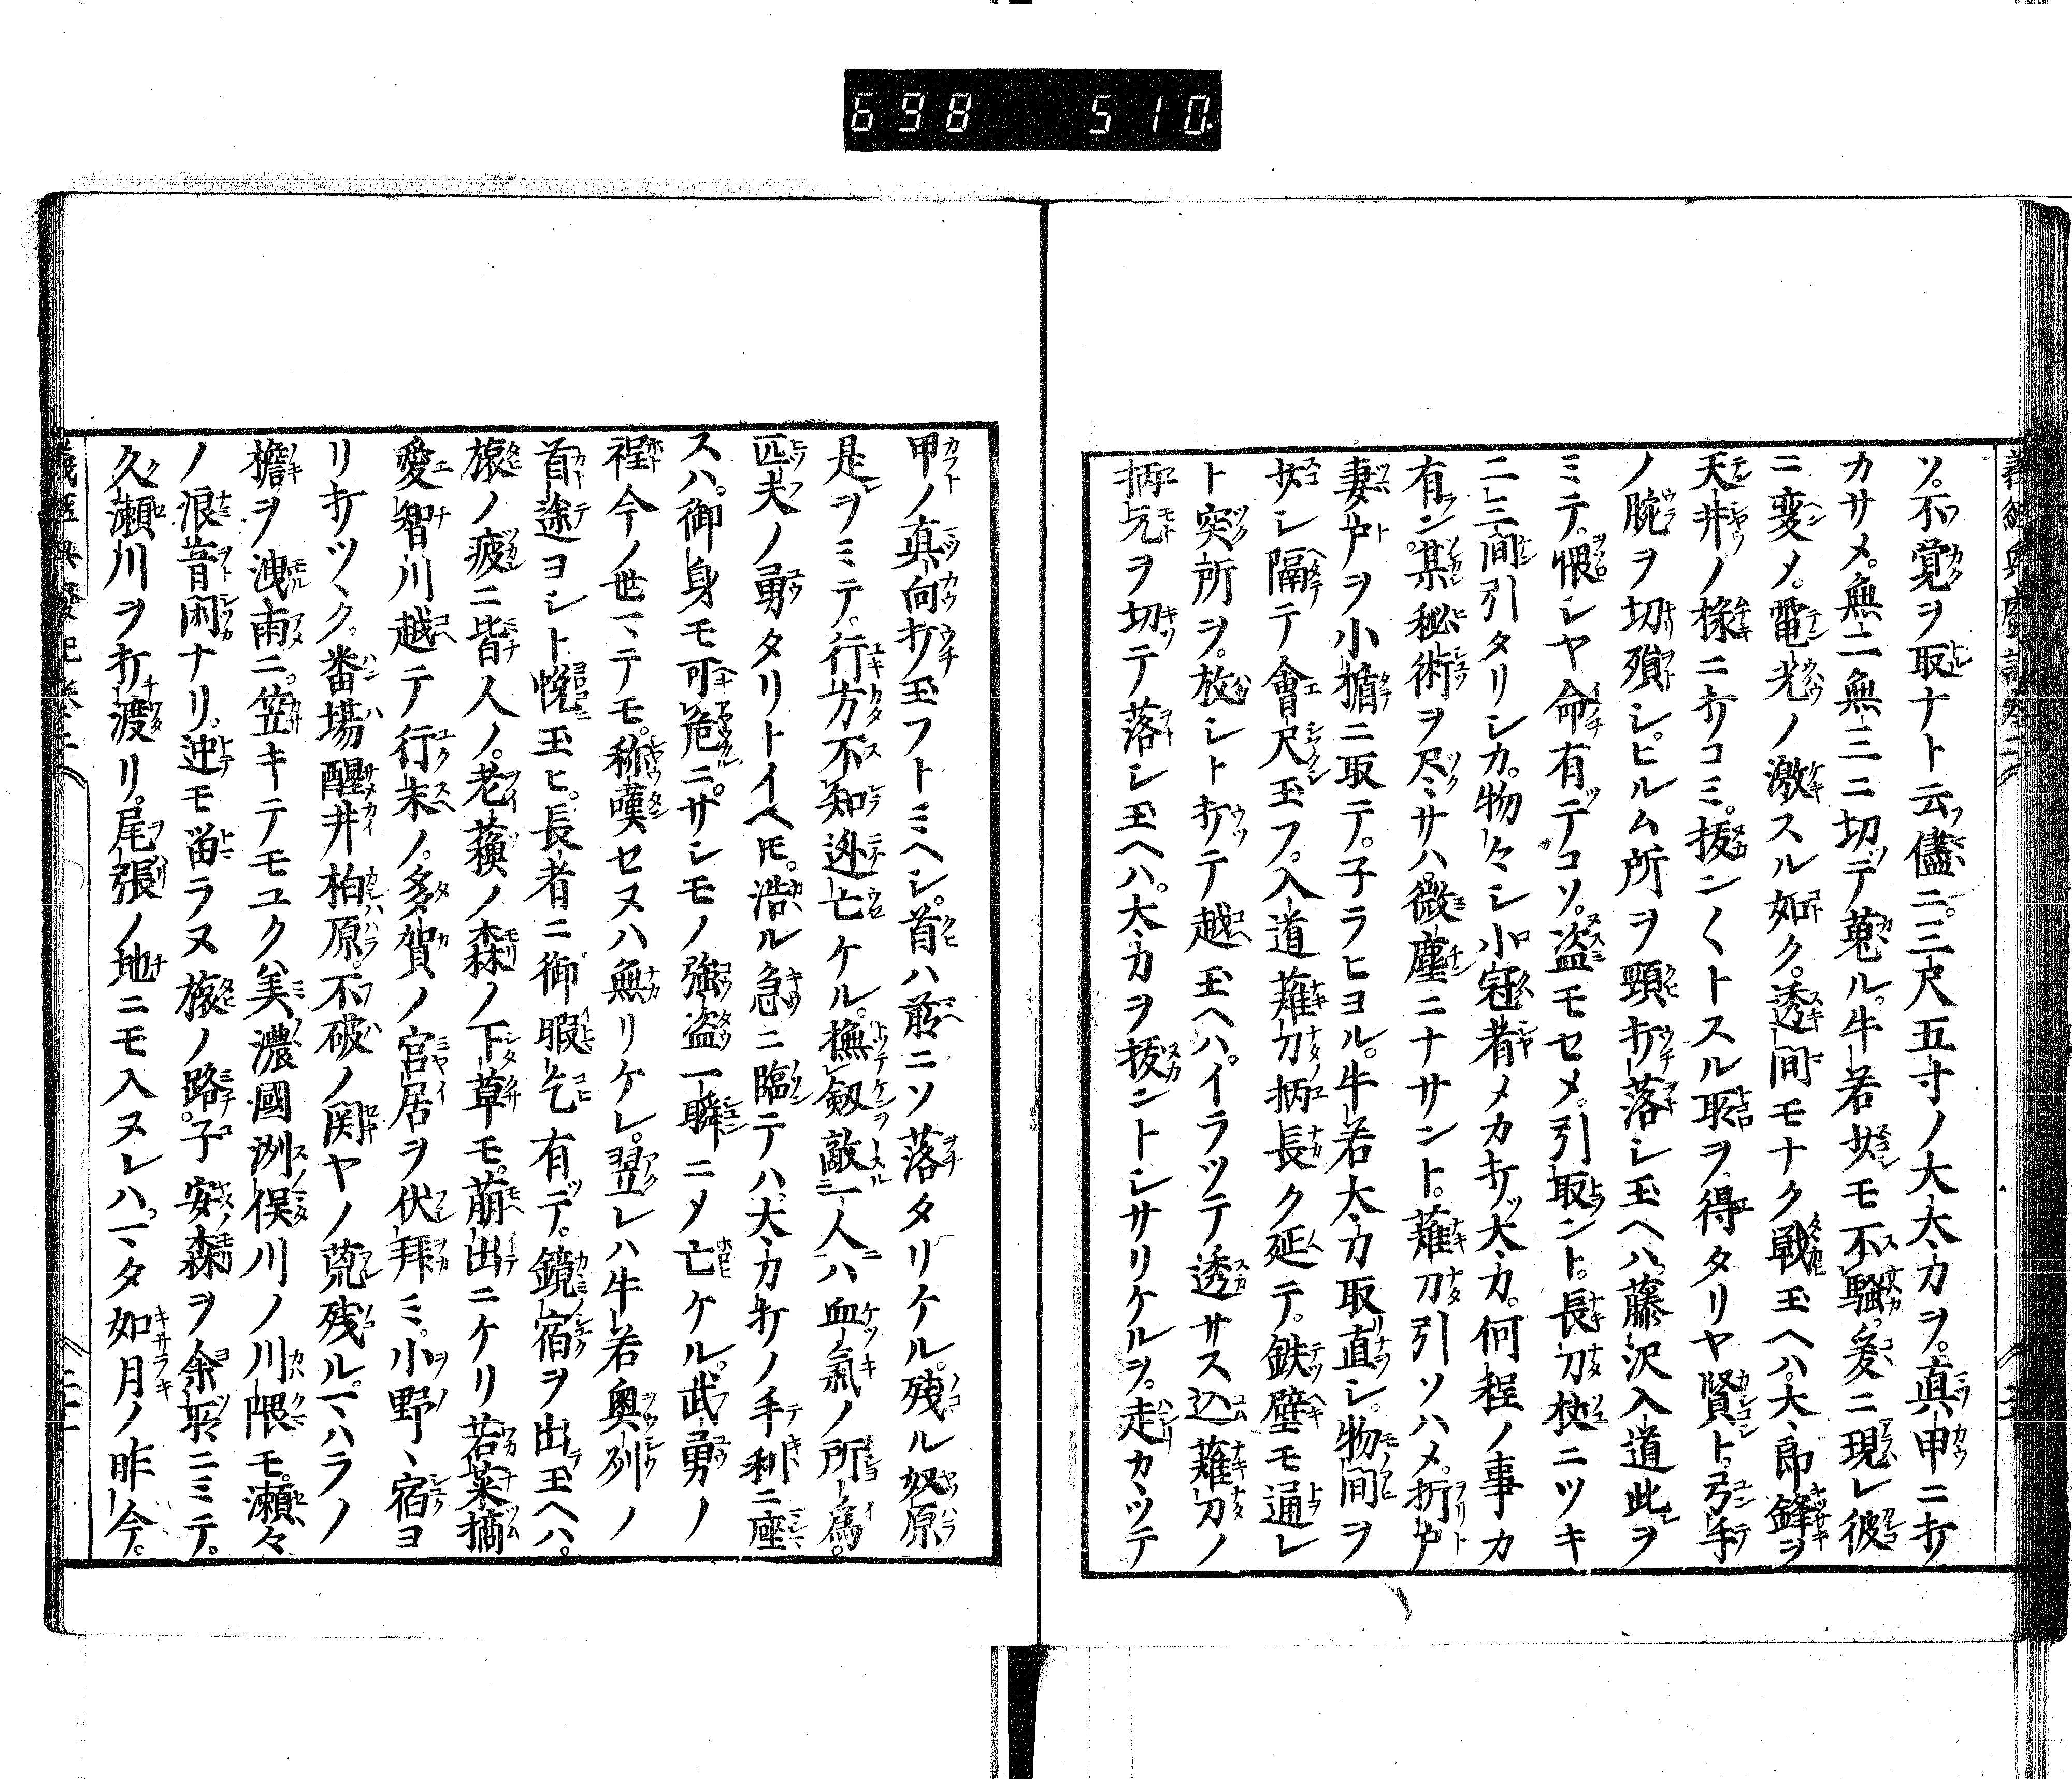 698 510
ソ。不覚ヲ取ナト云儘ニ。三尺五寸ノ大太刀ヲ。真甲ニ打
カサメ。無二無三ニ切デ蒐ル。牛若少モ不騒。爰ニ現レ彼
ニ変メ。電光ノ激スル如ク。透間モナク戦玉ヘハ。大郎鋒ヲ
天井ノ椽ニ打コミ。抜ン〱トスル所ヲ得タリヤ賢ト。弓手
ノ腕ヲ切殞シ。ヒルム所ヲ頸打落シ玉ヘハ。藤沢入道此ヲ
ミテ。悞シヤ命有デコソ。盗モセメ。引取ント。長刀杖ニツキ
二三間引タリシカ。物々シ小冠者メカ打大刀。何程ノ事カ
有ン。某秘術ヲ尽サハ。微塵ニナサント。薙刀引ソハメ。折戸
妻戸ヲ小楯ニ取テ。子ラヒヨル。牛若太刀取直シ。物間ヲ
少シ隔テ會尺玉フ。入道薙刀柄長ク延テ。鉄壁モ通レ
ト突所ヲ。放シト打テ越玉ヘハ。イラツテ透サス込薙刀ノ
柄元ヲ切テ落シ玉ヘハ。太刀ヲ抜ントシサリケルヲ。走カヽツテ
甲ノ真向打玉フトミヘシ。首ハ前ニソ落タリケル。残ル奴原
是ヲミテ。行方不知迯亡ケル。撫劔敵一人ハ血氣ノ所為。
匹夫ノ勇タリトイヘ𪜈。浩ル急ニ臨テハ。太刀打ノ手利ニ座
スハ。御身モ可危ニ。サシモノ強盗一瞬ニメ亡ケル。武勇ノ
程今ノ世マテモ。称嘆セヌハ無リケレ。翌レハ牛若奥列ノ
首途ヨシト悦玉ヒ。長者ニ御暇乞有デ。鏡宿ヲ出玉ヘハ。
旅ノ疲ニ皆人ノ。老蘓ノ森ノ下草モ。萠出ニケリ若菜摘
愛智川越テ行末ノ。多賀ノ宮居ヲ伏拜ミ。小野ヽ宿ヨ
リ打ツヽク。番場醒井柏原。不破ノ関ヤノ荒残ル。マハラノ
檐ヲ洩雨ニ。笠キテモユク美濃國洲俣川ノ川隈モ。瀬々
ノ浪音閑ナリ。迚モ畄ラヌ旅ノ路。子安森ヲ余所ニミテ。
久瀬川ヲ打渡リ。尾張ノ地ニモ入ヌレハ。マタ如月ノ昨今。